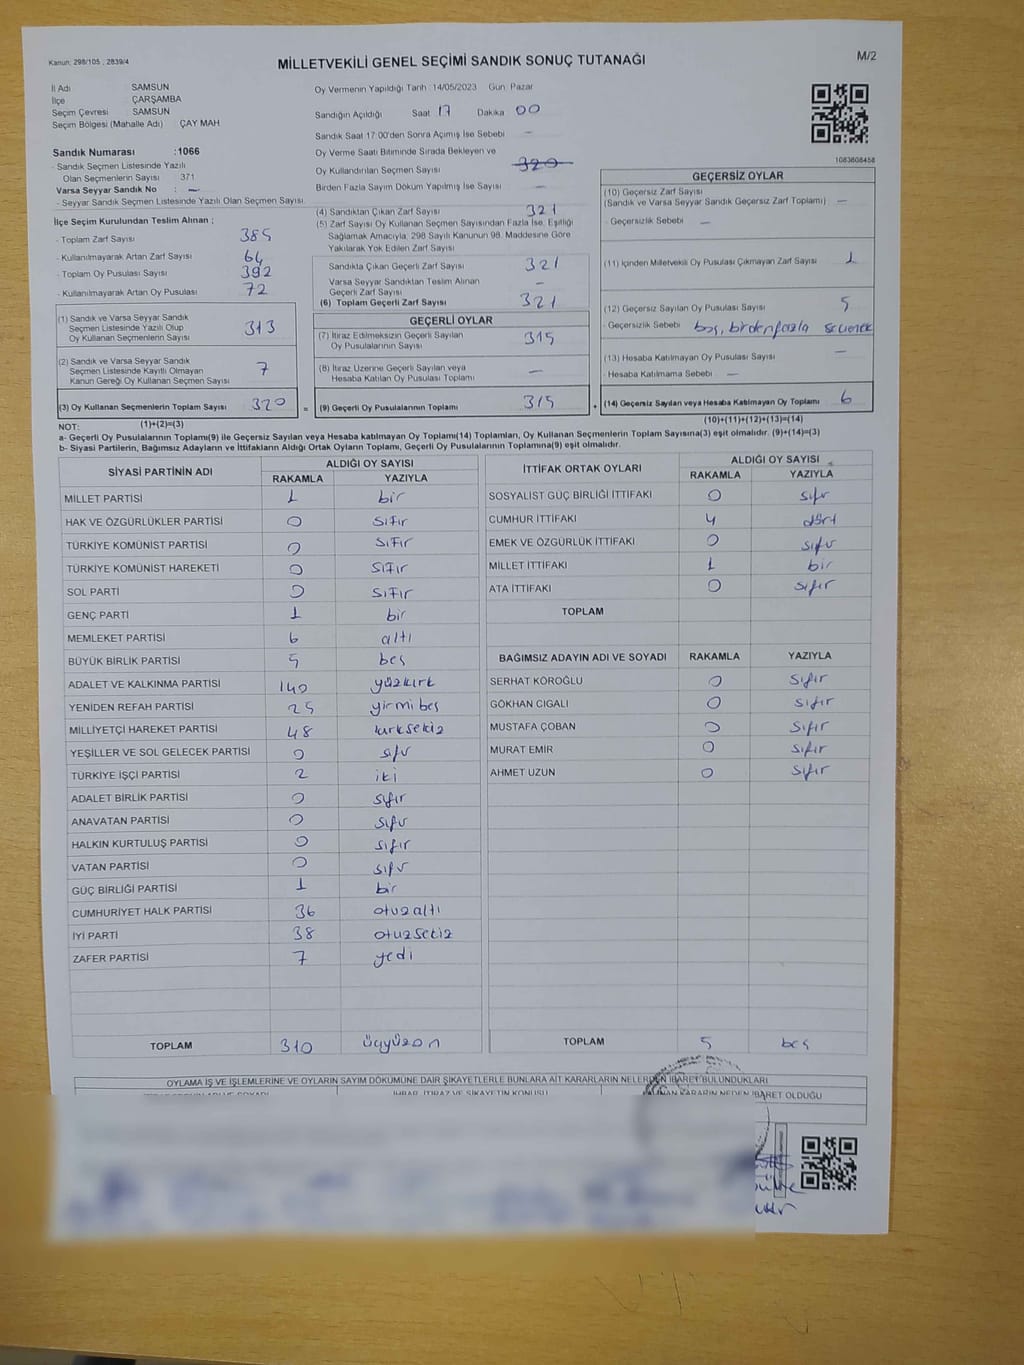 Kanun: 298/105 ; 2839/4
M/2
MİLLETVEKİLİ GENEL SEÇİMİ SANDIK SONUÇ TUTANAĞI
İl Adı SAMSUN
İlçe ÇARŞAMBA
Seçim Çevresi SAMSUN
Seçim Bölgesi (Mahalle Adı) ÇAY MAH.
Sandık Numarası :1066
- Sandık Seçmen Listesinde Yazılı
Olan Seçmenlerin Sayısı 371
Varsa Seyyar Sandık No : —
- Seyyar Sandık Seçmen Listesinde Yazılı Olan Seçmen Sayısı
İlçe Seçim Kurulundan Teslim Alınan ;
- Toplam Zarf Sayısı 385
- Kullanılmayarak Artan Zarf Sayısı 64
- Toplam Oy Pusulası Sayısı 392
- Kullanılmayarak Artan Oy Pusulası 72
(1) Sandık ve Varsa Seyyar Sandık
Seçmen Listesinde Yazılı Olup
Oy Kullanan Seçmenlerin Sayısı 313
(2) Sandık ve Varsa Seyyar Sandık
Seçmen Listesinde Kayıtlı Olmayan
Kanun Gereği Oy Kullanan Seçmen Sayısı 7
(3) Oy Kullanan Seçmenlerin Toplam Sayısı 320 =
(1)+(2)=(3)
Oy Vermenin Yapıldığı Tarih :14/05/2023 Gün: Pazar
Sandığın Açıldığı Saat 17 Dakika 00
Sandık Saat 17:00'den Sonra Açımış İse Sebebi —
Oy Verme Saati Bitiminde Sırada Bekleyen ve
Oy Kullandırılan Seçmen Sayısı 320
Birden Fazla Sayım Döküm Yapılmış İse Sayısı —
(4) Sandıktan Çıkan Zarf Sayısı 321
(5) Zarf Sayısı Oy Kullanan Seçmen Sayısından Fazla İse, Eşitliği
Sağlamak Amacıyla, 298 Sayılı Kanunun 98. Maddesine Göre
Yakılarak Yok Edilen Zarf Sayısı
Sandıkta Çıkan Geçerli Zarf Sayısı 321
Varsa Seyyar Sandıktan Teslim Alınan
Geçerli Zarf Sayısı —
(6) Toplam Geçerli Zarf Sayısı 321
GEÇERLİ OYLAR
(7) İtiraz Edilmeksizin Geçerli Sayılan
Oy Pusulalarının Sayısı 315
(8) İtiraz Üzerine Geçerli Sayılan veya
Hesaba Katılan Oy Pusulası Toplamı —
(9) Geçerli Oy Pusulalarının Toplamı 315 +
1083808458
GEÇERSİZ OYLAR
(10) Geçersiz Zarf Sayısı
(Sandık ve Varsa Seyyar Sandık Geçersiz Zarf Toplamı) —
- Geçersizlik Sebebi —
(11) İçinden Milletvekili Oy Pusulası Çıkmayan Zarf Sayısı 1
(12) Geçersiz Sayılan Oy Pusulası Sayısı 5
- Geçersizlik Sebebi boş, birden fazla seçenek
(13) Hesaba Katılmayan Oy Pusulası Sayısı —
- Hesaba Katılmama Sebebi —
(14) Geçersiz Sayılan veya Hesaba Katılmayan Oy Toplamı 6
(10)+(11)+(12)+(13)=(14)
NOT:
a- Geçerli Oy Pusulalarının Toplamı(9) ile Geçersiz Sayılan veya Hesaba katılmayan Oy Toplamı(14) Toplamları, Oy Kullanan Seçmenlerin Toplam Sayısına(3) eşit olmalıdır. (9)+(14)=(3)
b- Siyasi Partilerin, Bağımsız Adayların ve İttifakların Aldığı Ortak Oyların Toplamı, Geçerli Oy Pusulalarının Toplamına(9) eşit olmalıdır.
SİYASİ PARTİNİN ADI ALDIĞI OY SAYISI
RAKAMLA YAZIYLA
MİLLET PARTİSİ 1 bir
HAK VE ÖZGÜRLÜKLER PARTİSİ 0 sıfır
TÜRKİYE KOMÜNİST PARTİSİ 0 sıfır
TÜRKİYE KOMÜNİST HAREKETİ 0 sıfır
SOL PARTİ 0 sıfır
GENÇ PARTİ 1 bir
MEMLEKET PARTİSİ 6 altı
BÜYÜK BİRLİK PARTİSİ 5 beş
ADALET VE KALKINMA PARTİSİ 140 yüzkırk
YENİDEN REFAH PARTİSİ 25 yirmibeş
MİLLİYETÇİ HAREKET PARTİSİ 48 kırksekiz
YEŞİLLER VE SOL GELECEK PARTİSİ 0 sıfır
TÜRKİYE İŞÇİ PARTİSİ 2 iki
ADALET BİRLİK PARTİSİ 0 sıfır
ANAVATAN PARTİSİ 0 sıfır
HALKIN KURTULUŞ PARTİSİ 0 sıfır
VATAN PARTİSİ 0 sıfır
GÜÇ BİRLİĞİ PARTİSİ 1 bir
CUMHURİYET HALK PARTİSİ 36 otuzaltı
İYİ PARTİ 38 otuzsekiz
ZAFER PARTİSİ 7 yedi
TOPLAM 310 üçyüzon
İTTİFAK ORTAK OYLARI ALDIĞI OY SAYISI
RAKAMLA YAZIYLA
SOSYALİST GÜÇ BİRLİĞİ İTTİFAKI 0 sıfır
CUMHUR İTTİFAKI 4 dört
EMEK VE ÖZGÜRLÜK İTTİFAKI 0 sıfır
MİLLET İTTİFAKI 1 bir
ATA İTTİFAKI 0 sıfır
TOPLAM
BAĞIMSIZ ADAYIN ADI VE SOYADI RAKAMLA YAZIYLA
SERHAT KÖROĞLU 0 sıfır
GÖKHAN CIGALI 0 sıfır
MUSTAFA ÇOBAN 0 sıfır
MURAT EMİR 0 sıfır
AHMET UZUN 0 sıfır
TOPLAM 5 beş
OYLAMA İŞ VE İŞLEMLERİNE VE OYLARIN SAYIM DÖKÜMÜNE DAİR ŞİKAYETLERLE BUNLARA AİT KARARLARIN NELERDEN İBARET BULUNDUKLARI
İHBAR, İTİRAZ VE ŞİKAYETİN KONUSU
KARARIN NEDEN İBARET OLDUĞU